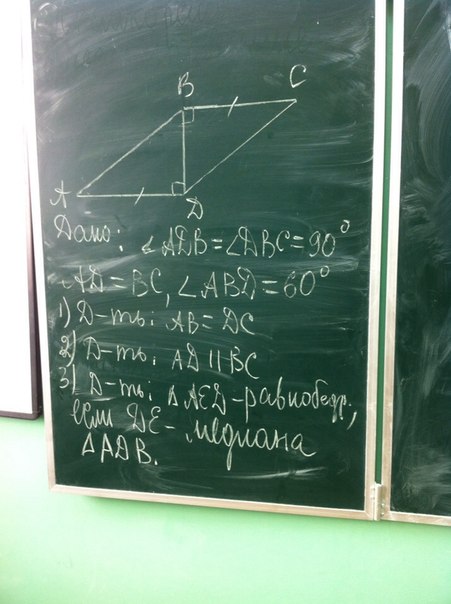 B
C
A
D
Дано: ∠ADB=∠DBC=90°
AD=BC, ∠ABD=60°
1) Д-ть: AB=DC
2) Д-ть: AD || BC
3) Д-ть: △AED-равнобедр.,
если DE-медиана
△ADB.